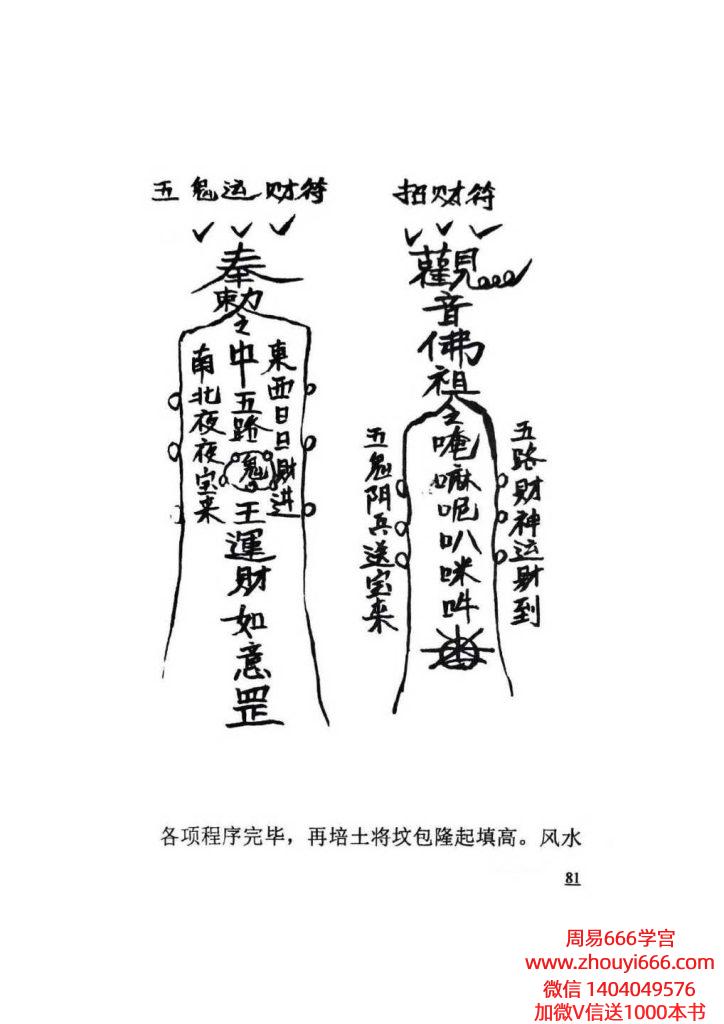 五鬼运财符
奉勅令
中五路鬼王運財如意罡
東西日日財進
南北夜夜宝来
招财符
觀音佛祖
令唵嘛呢叭咪吽
五路财神运财到
五鬼阴兵送宝来
各项程序完毕，再培土将坟包隆起填高。风水
81
周易666学宫
www.zhouyi666.com
微信 1404049576
加微V信送1000本书